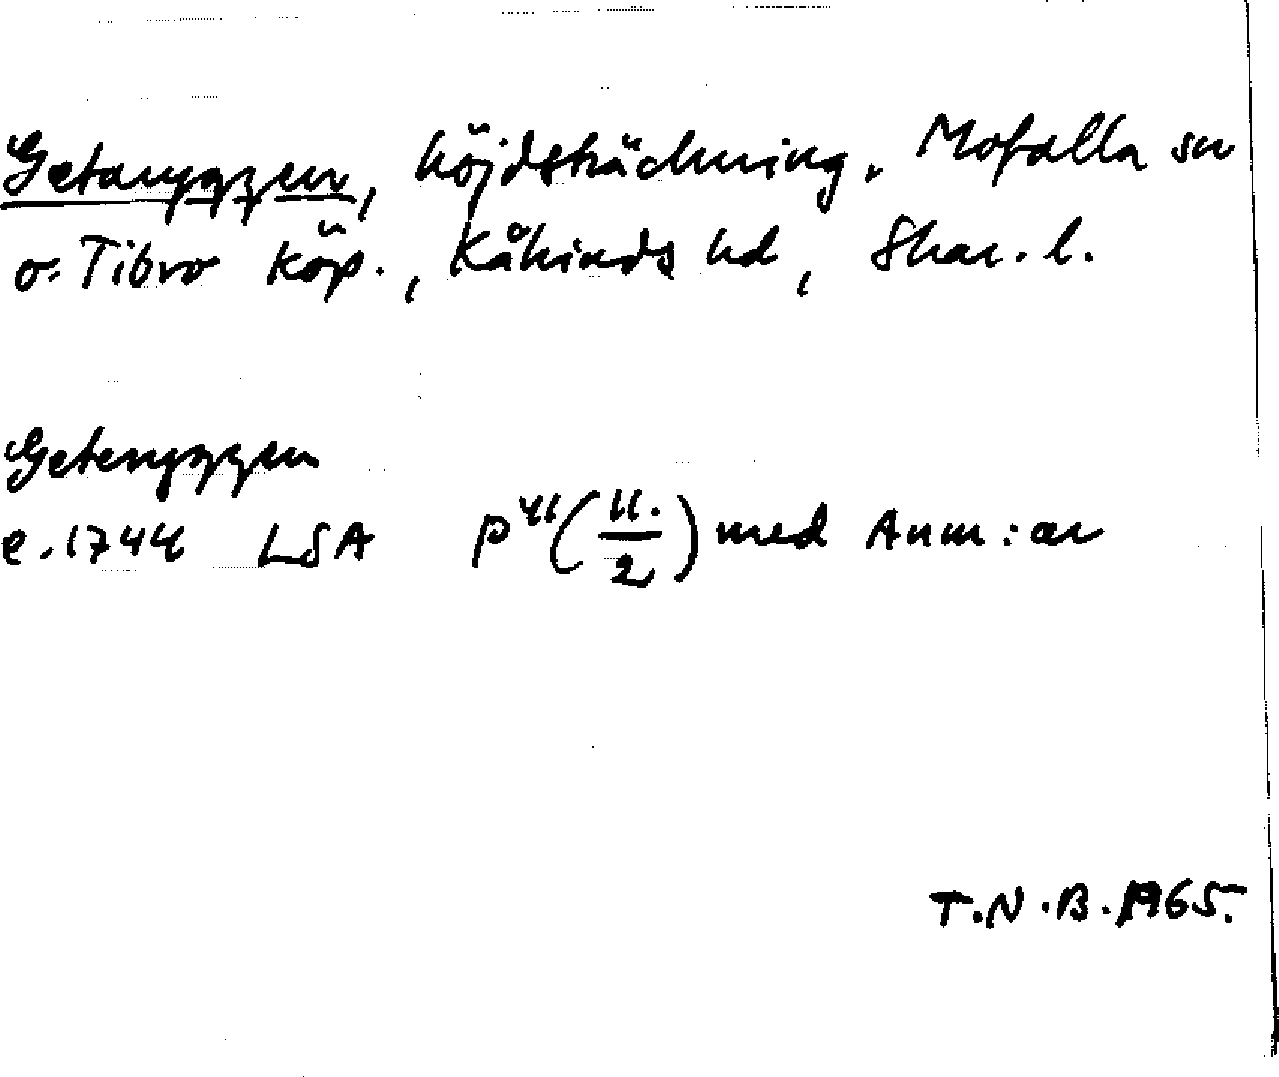 Getaryggen, höjdsträckning. Mofalla sn
o. Tibro köp., Kåkinds hd, Skar. l.
Geteryggen
e. 1744 LSA P41(11./2) med Anm:ar
T.N.B. 1965.